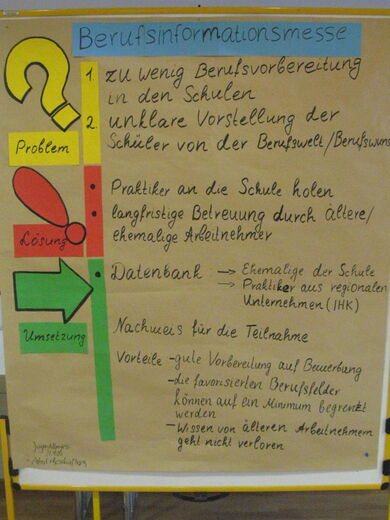 Berufsinformationsmesse
Problem
1. zu wenig Berufsvorbereitung
in den Schulen
2. unklare Vorstellung der
Schüler von der Berufswelt/Berufswuns
Lösung
• Praktiker an die Schule holen
• langfristige Betreuung durch ältere/
ehemalige Arbeitnehmer
Umsetzung
• Datenbank: → Ehemalige der Schule
→ Praktiker aus regionalen
Unternehmen (IHK)
Nachweis für die Teilnahme
Vorteile - gute Vorbereitung auf Bewerbung
- die favorisierten Berufsfelder
können auf ein Minimum begrenzt
werden
- Wissen von älteren Arbeitnehmern
geht nicht verloren